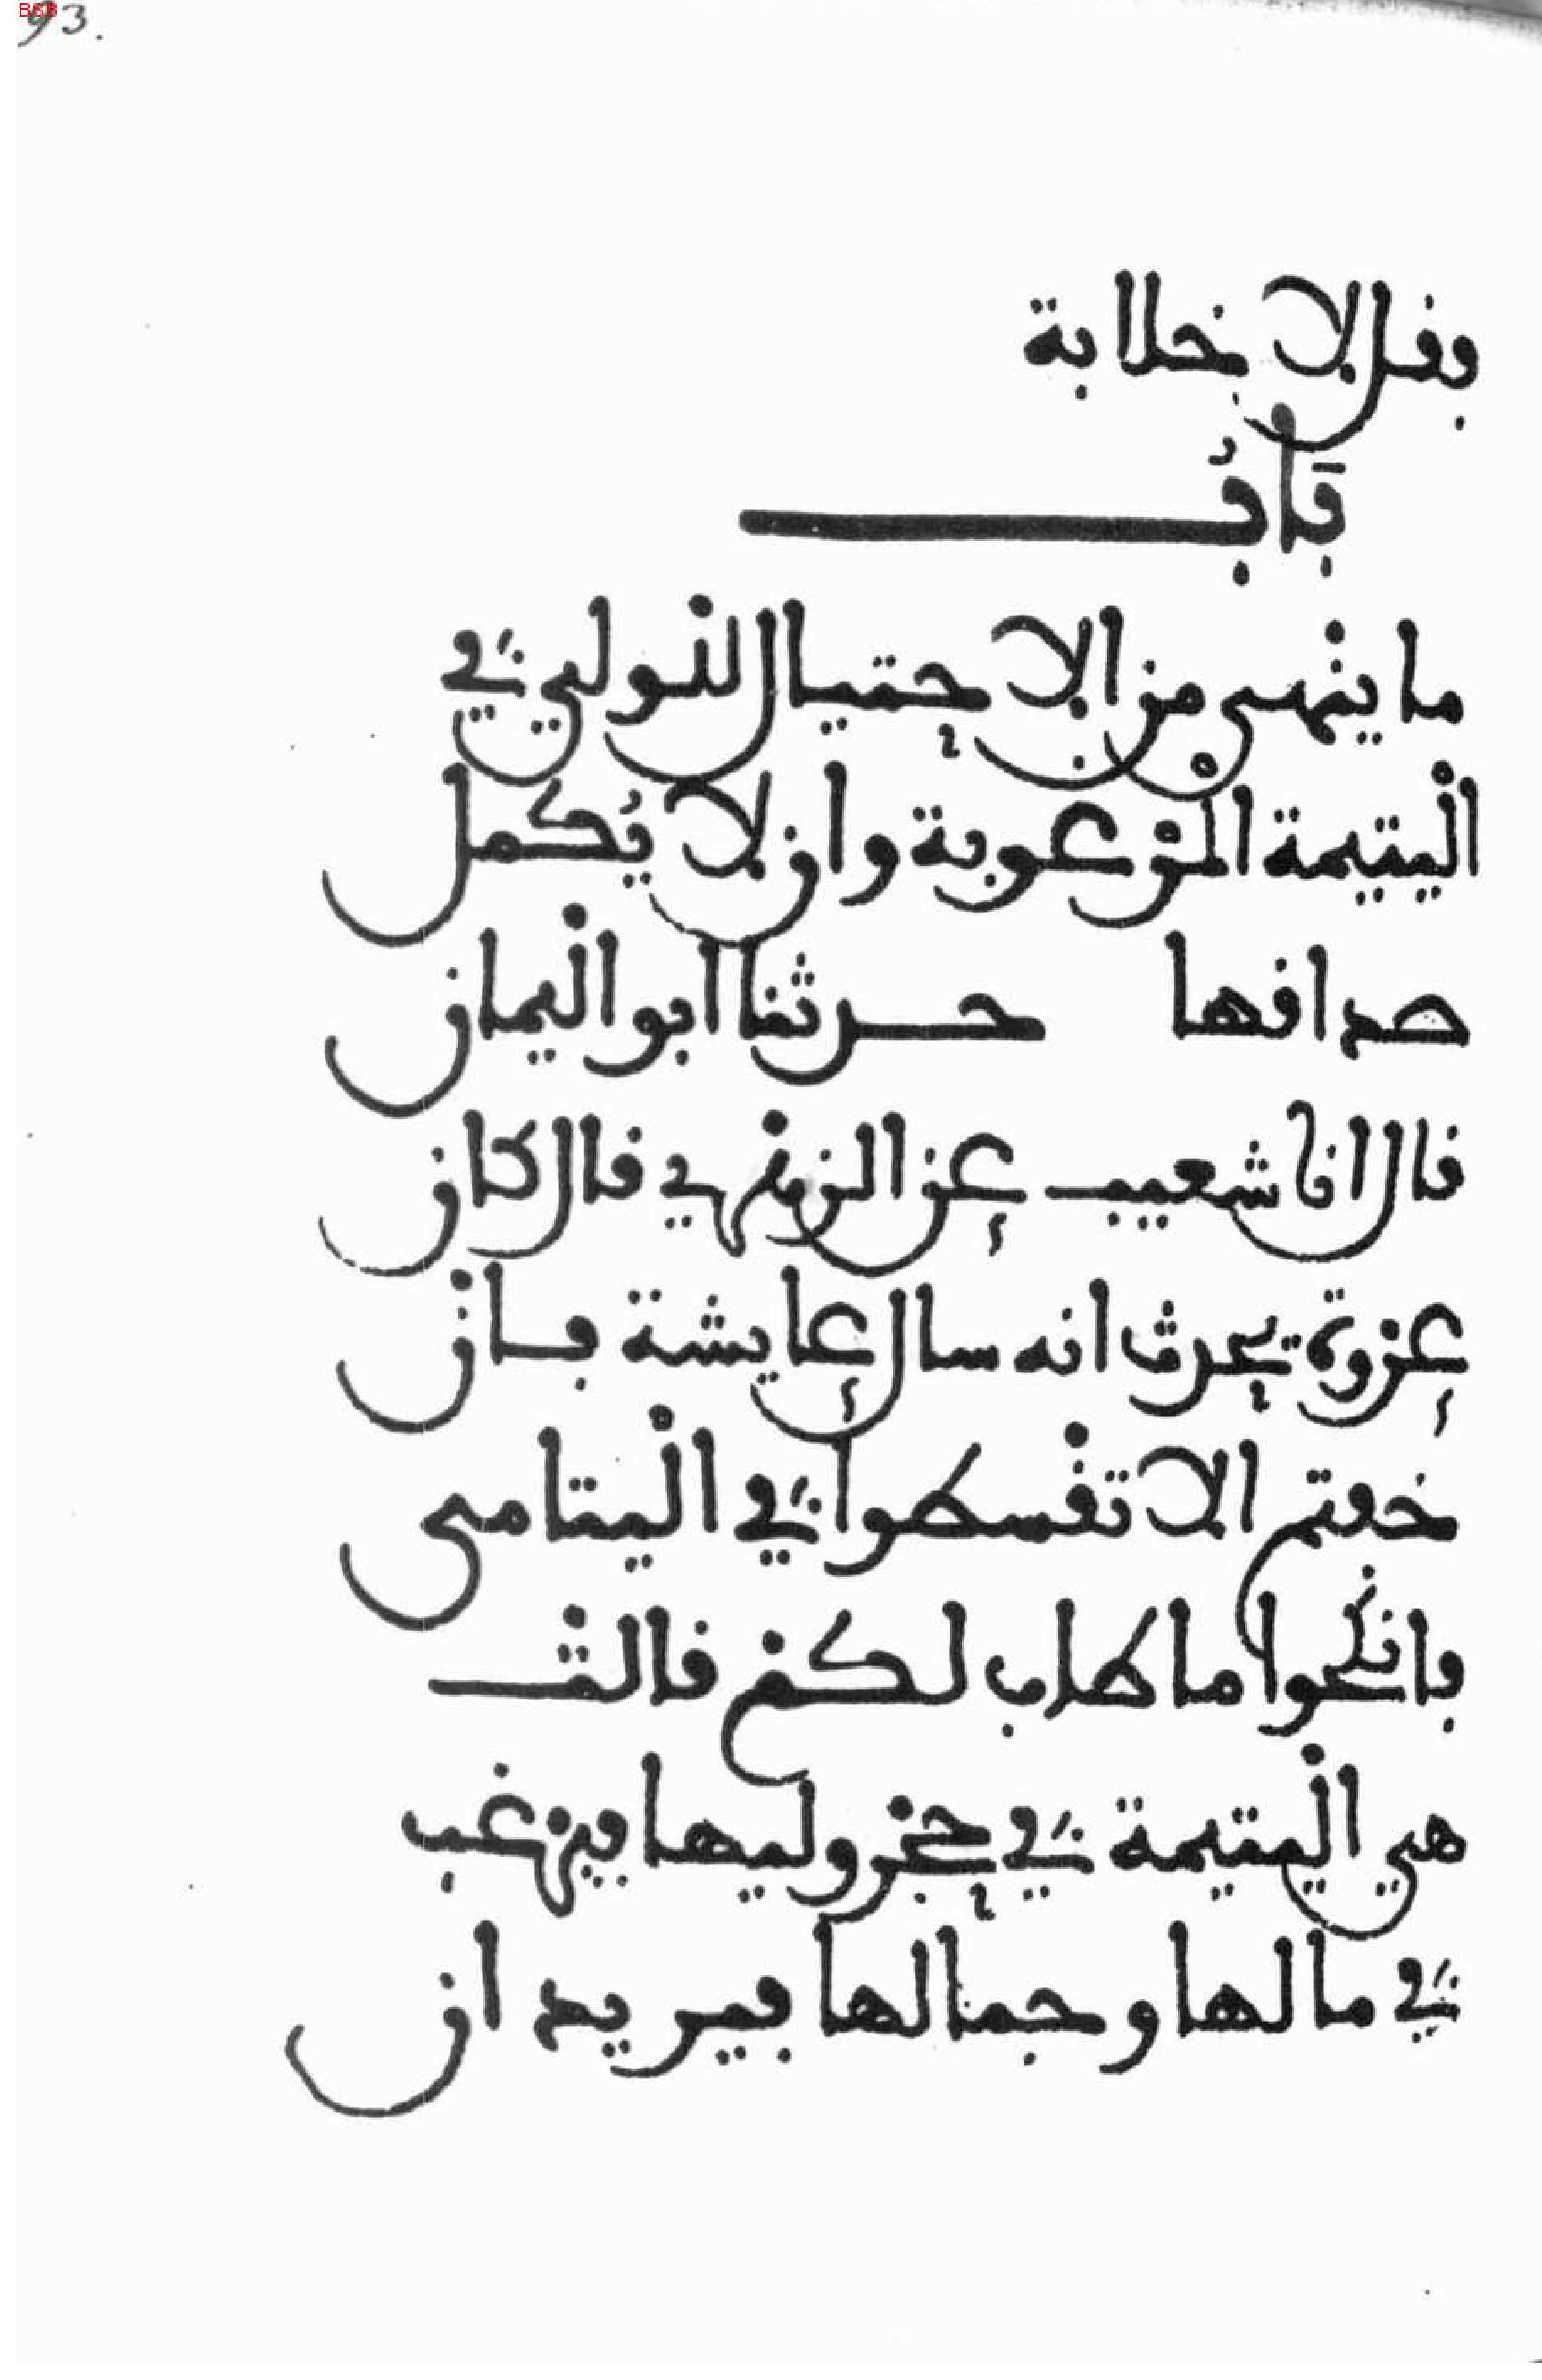 BSB
93.
فقل لا خلابة
بَابُ
ما ينهى من الاحتيال للولي في
اليتيمة المرغوبة وان لا يُكمل
صداقها حدثنا ابو اليمان
قال انا شعيب عن الزهري قال كان
عروة يحدث انه سال عايشة فان
خفتم الا تقسطوا في اليتامى
فانكحوا ما طاب لكم قالت
هي اليتيمة في حجر وليها فيرغب
في مالها وجمالها فيريد ان